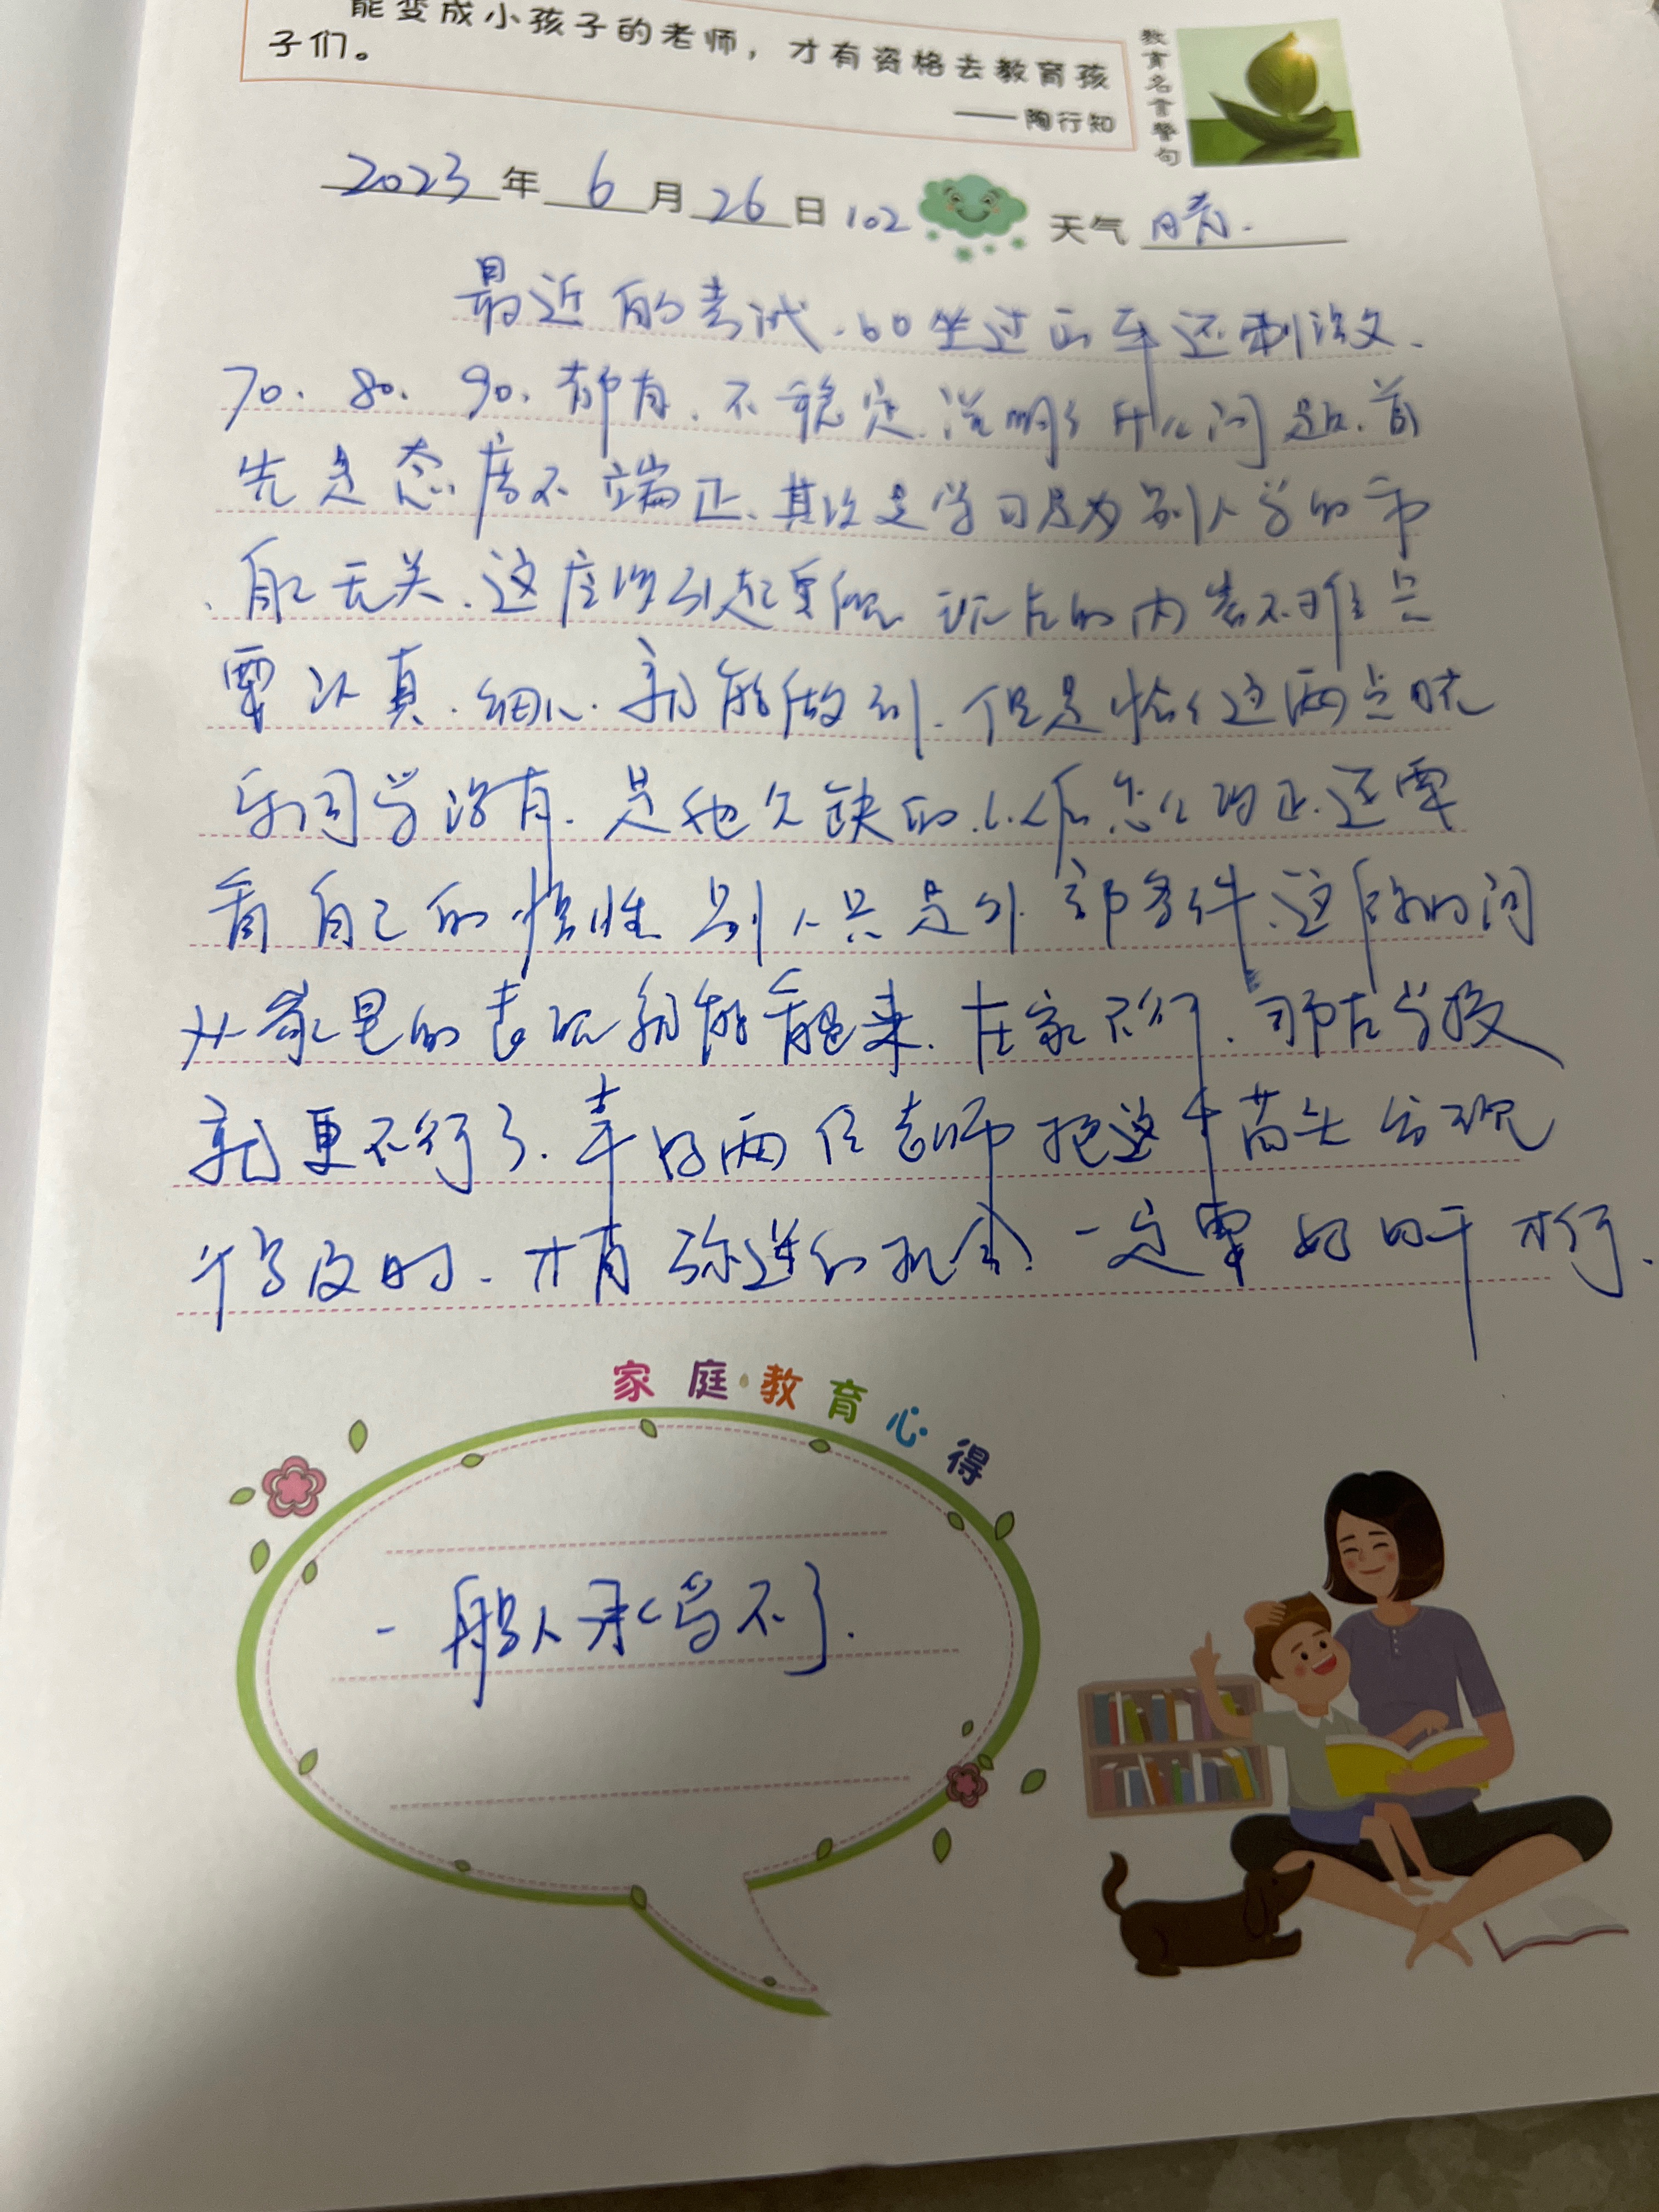 能变成小孩子的老师，才有资格去教育孩
子们。
——陶行知
教育名言警句
2023年6月26日 102 天气 晴.
最近的考试.比坐过山车还刺激.
70. 80. 90. 都有. 不稳定. 说明了什么问题. 首
先是态度不端正. 其次是学习是为别人学的 与
自己无关. 这应该引起重视 试卷的内容不难 只
要认真. 细心. 就能做到. 但是恰恰这两点
乐同学没有. 是他欠缺的. 以后怎么改正. 还要
看自己的悟性 别人只是外部条件. 这
从家里的表现就能看出来. 在家不行. 那在学校
就更不行了. 幸好两位老师把这个苗头发现
得及时. 才有 的机会. 一定要好好干才行.
家庭·教育心得
一般人承受不了.